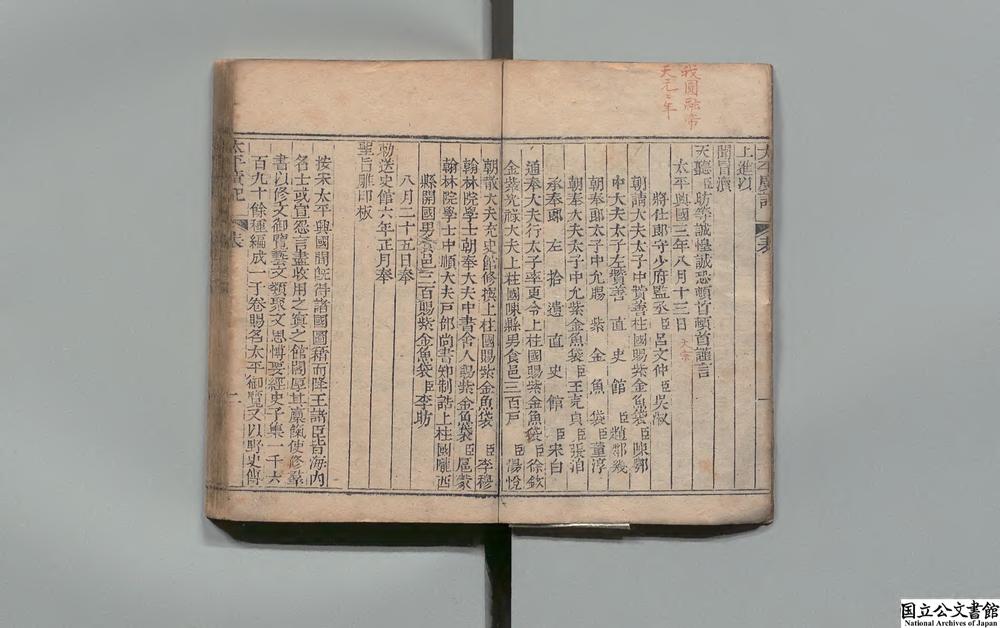 我圓融帝
天元二年
太平廣記 表 一
上進以
聞冒瀆
天聽臣昉等誠惶誠恐頓首頓首謹言
太平興國三年八月十三日 太宗
將仕郎守少府監丞臣呂文仲臣吳淑
朝請大夫太子中贊善柱國賜紫金魚袋臣陳鄂
中大夫太子左贊善直史館臣趙鄰幾
朝奉郎太子中允賜紫金魚袋臣董淳
朝奉大夫太子中允紫金魚袋臣王克貞臣張洎
承奉郎左拾遺直史館臣宋白
通奉大夫行太子率更令上柱國賜紫金魚袋臣徐鉉
金紫光祿大夫上柱國陳縣男食邑三百戶臣湯悅
朝散大夫充史館修撰上柱國賜紫金魚袋臣李穆
翰林院學士朝奉大夫中書舍人賜紫金魚袋臣扈蒙
翰林院學士中順大夫戶部尚書知制誥上柱國隴西
縣開國男食邑三百賜紫金魚袋臣李昉
八月二十五日奉
勅送史館六年正月奉
聖旨雕印板
按宋太平興國間既得諸國圖籍而降王諸臣皆海內
名士或宣怨言盡收用之寘之館閣厚其廩餼使修羣
書以修文御覽藝文類聚文思博要經史子集一千六
百九十餘種編成一千卷賜名太平御覽又以野史傳
太平廣記 表 二
国立公文書館
National Archives of Japan